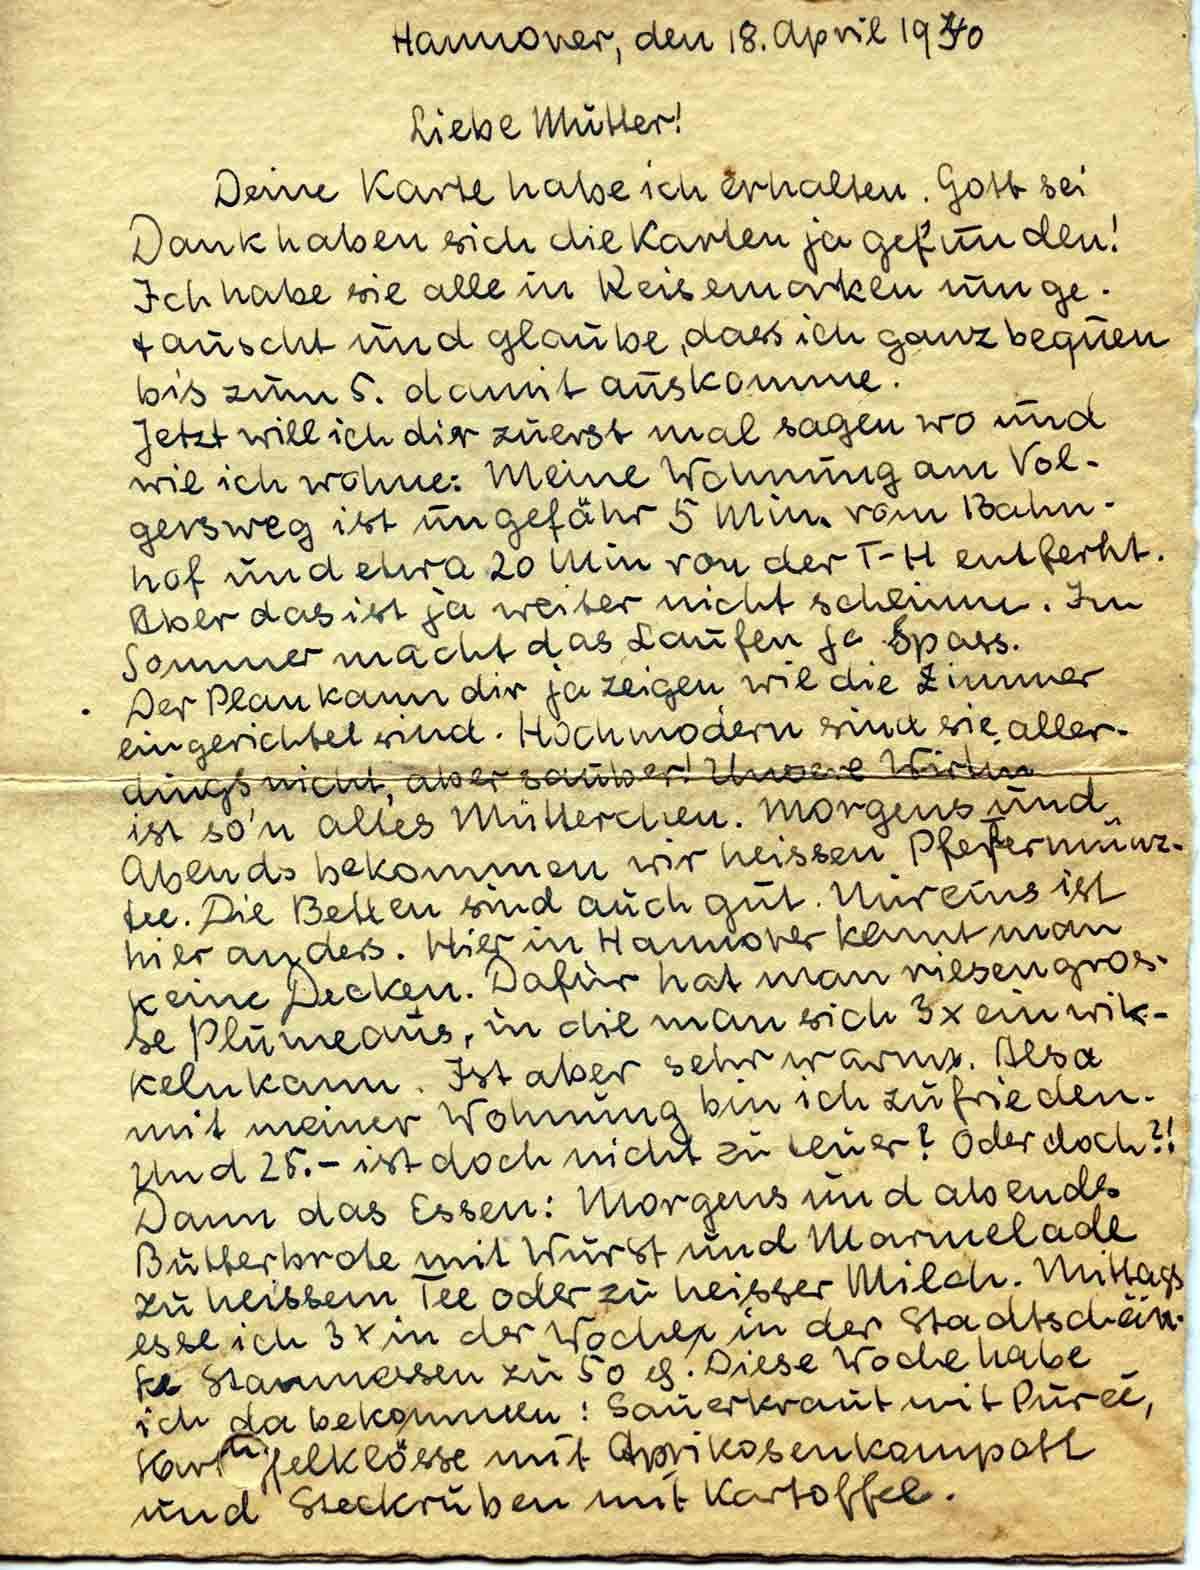 Hannover, den 18. April 1940
Liebe Mutter!
Deine Karte habe ich erhalten. Gott sei
Dank haben sich die Karten ja gefunden!
Ich habe sie alle in Reisemarken umge-
tauscht und glaube, dass ich ganz bequem
bis zum 5. damit auskomme.
Jetzt will ich dir zuerst mal sagen wo und
wie ich wohne: Meine Wohnung am Vol-
gersweg ist ungefähr 5 Min. vom Bahn-
hof und etwa 20 Min von der T-H entfernt.
Aber das ist ja weiter nicht schlimm. Im
Sommer macht das Laufen ja Spass.
Der Plan kann dir ja zeigen wie die Zimmer
eingerichtet sind. Hochmodern sind sie aller-
dings nicht, aber sauber! Unsere Wirtin
ist so'n altes Mütterchen. Morgens und
Abends bekommen wir heissen Pfefermünz-
tee. Die Betten sind auch gut. Nur eins ist
hier anders. Hier in Hannover kennt man
keine Decken. Dafür hat man riesengros-
se Plumeaus, in die man sich 3x einwik-
keln kann. Ist aber sehr warm. Also
mit meiner Wohnung bin ich zufrieden.
Und 25.- ist doch nicht zu teuer? Oder doch?!
Dann das Essen: Morgens und abends
Butterbrote mit Wurst und Marmelade
zu heissem Tee oder zu heisser Milch. Mittags
esse ich 3x in der Woche in der Stadtschän-
ke Stammessen zu 50 . Diese Woche habe
ich da bekommen: Sauerkraut mit Püree,
Kartoffelklösse mit Aprikosenkompott
und Steckrüben mit Kartoffel.